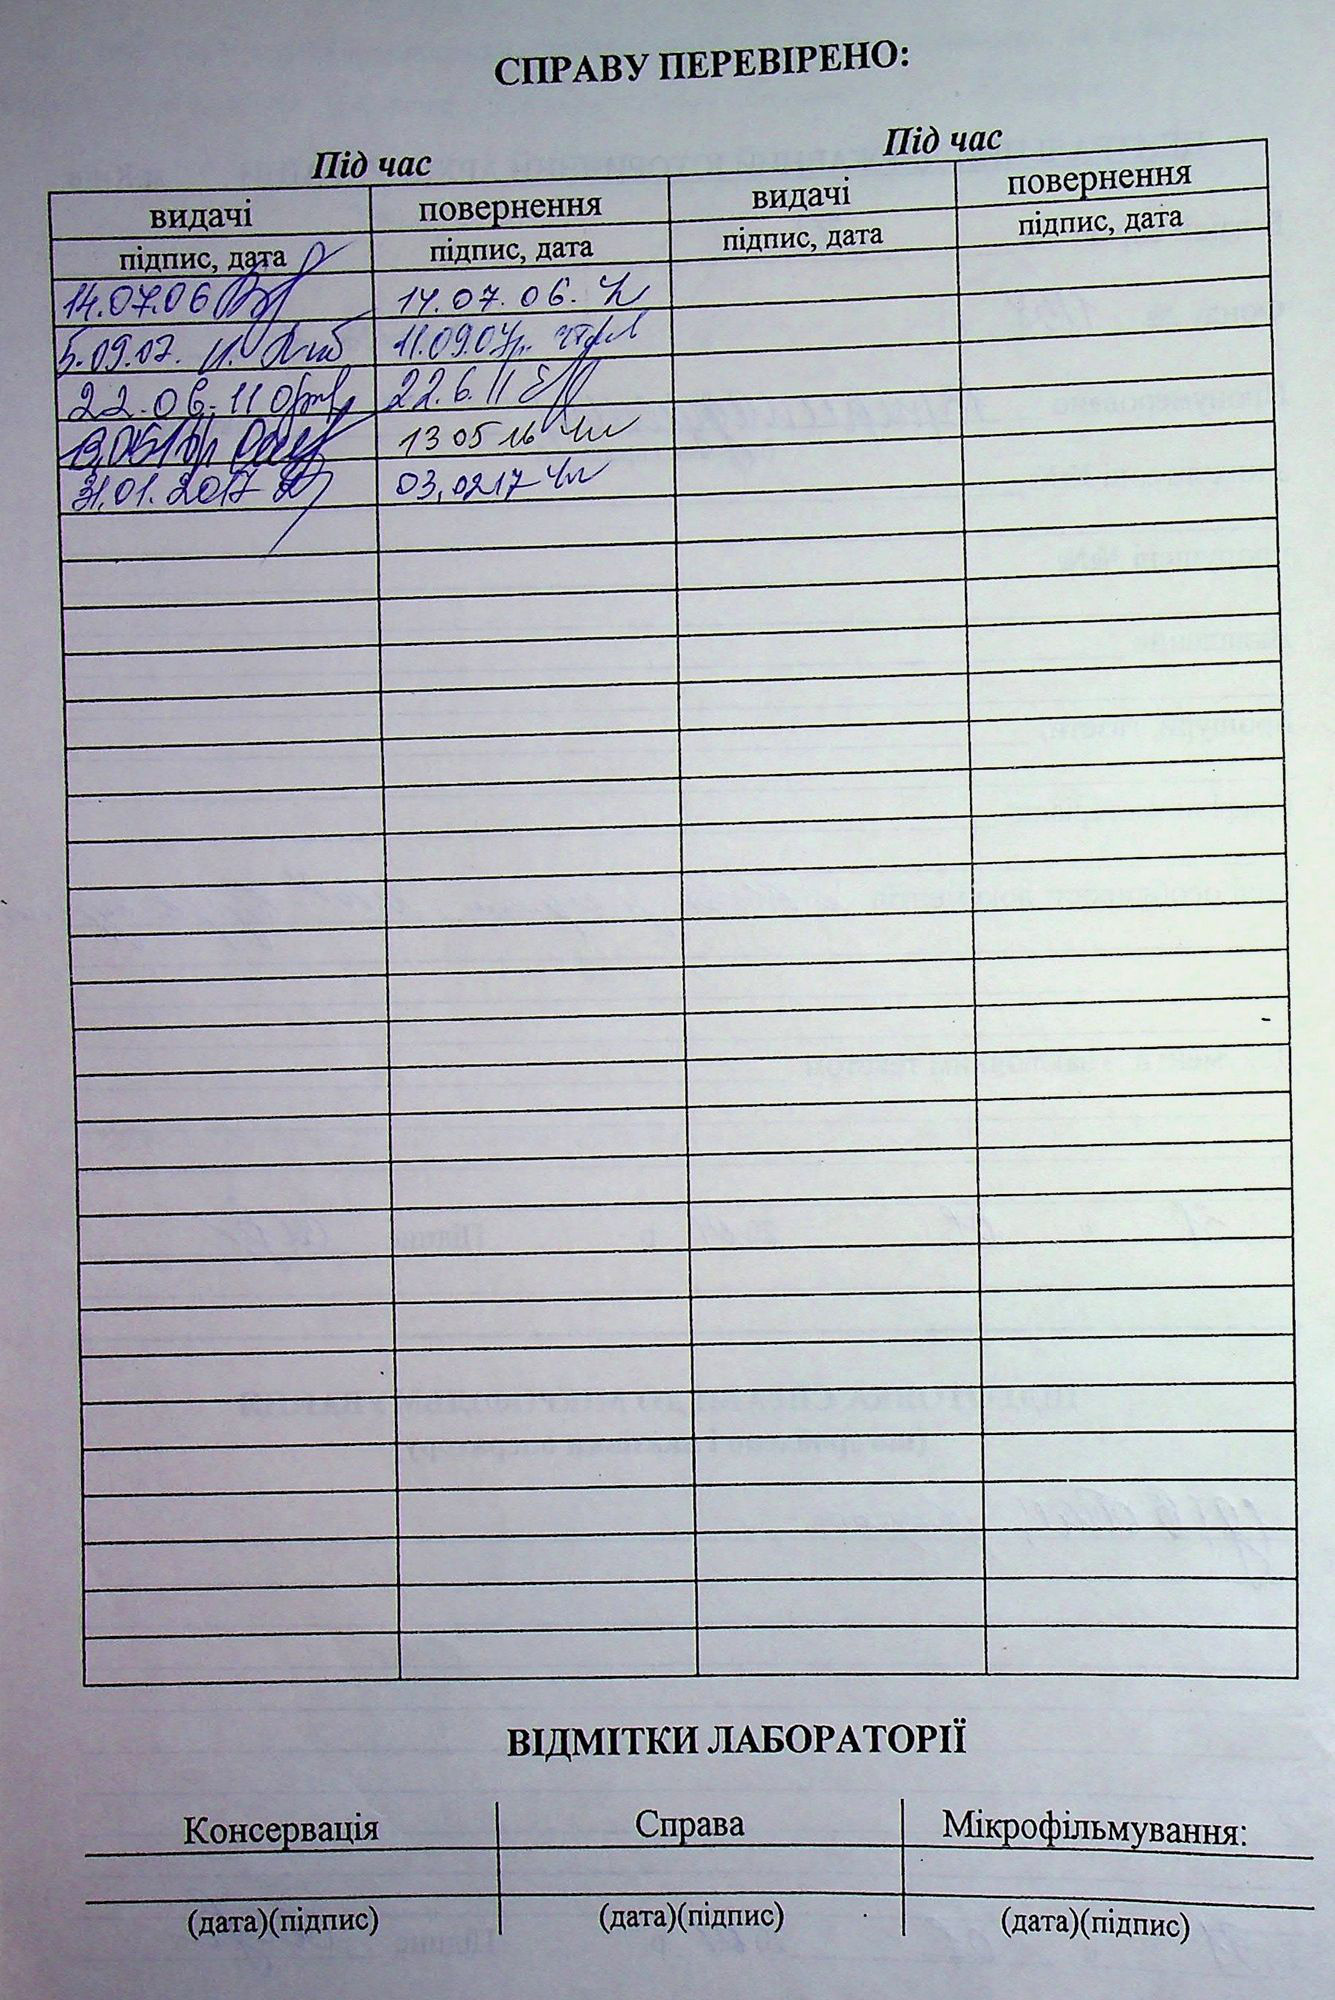 СПРАВУ ПЕРЕВІРЕНО:
Під час Під час
видачі повернення видачі повернення
підпис, дата підпис, дата підпис, дата підпис, дата
14.07.06 14.07.06.
5.09.07. 11.09.07р.
22.06.11 22.6.11
13.05.16р 13 05 16
31.01.2017 03.02 17
ВІДМІТКИ ЛАБОРАТОРІЇ
Консервація Справа Мікрофільмування:
(дата)(підпис) (дата)(підпис) (дата)(підпис)